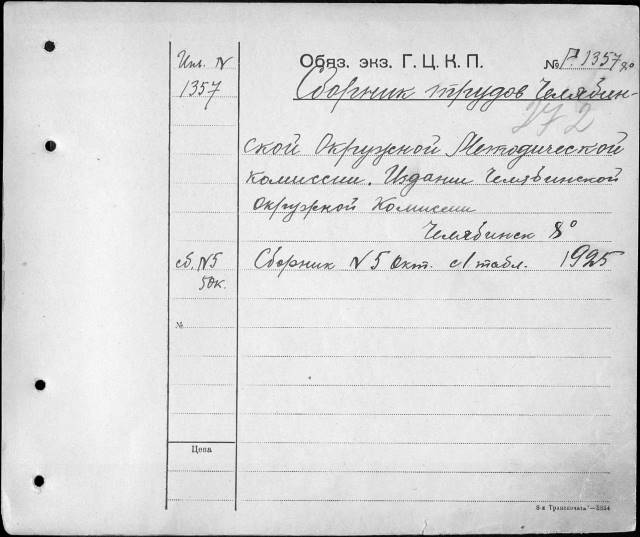 Инв. N
1357
Обяз. экз. Г. Ц. К. П.
№ Р 1357 8°
Сборник трудов Челябин-
272
ской Окружной Методической
комиссии. Издании Челябинской
Окружной Комиссии
Челябинск 8°
сб. N5
5 Ок.
Сборник N 5 Окт. с 1 табл. 1925
№
Цена
8-я Транспечать"—5854